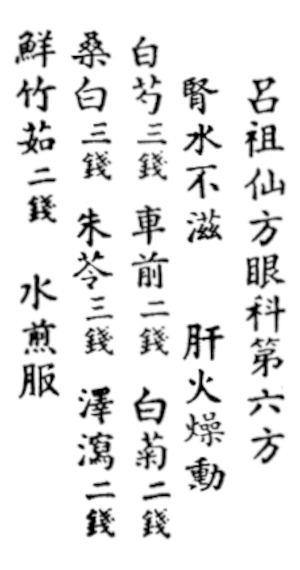 呂祖仙方眼科第六方
腎水不滋 肝火燥動
白芍三錢 車前二錢 白菊二錢
桑白三錢 朱苓三錢 澤瀉二錢
鮮竹茹二錢 水煎服